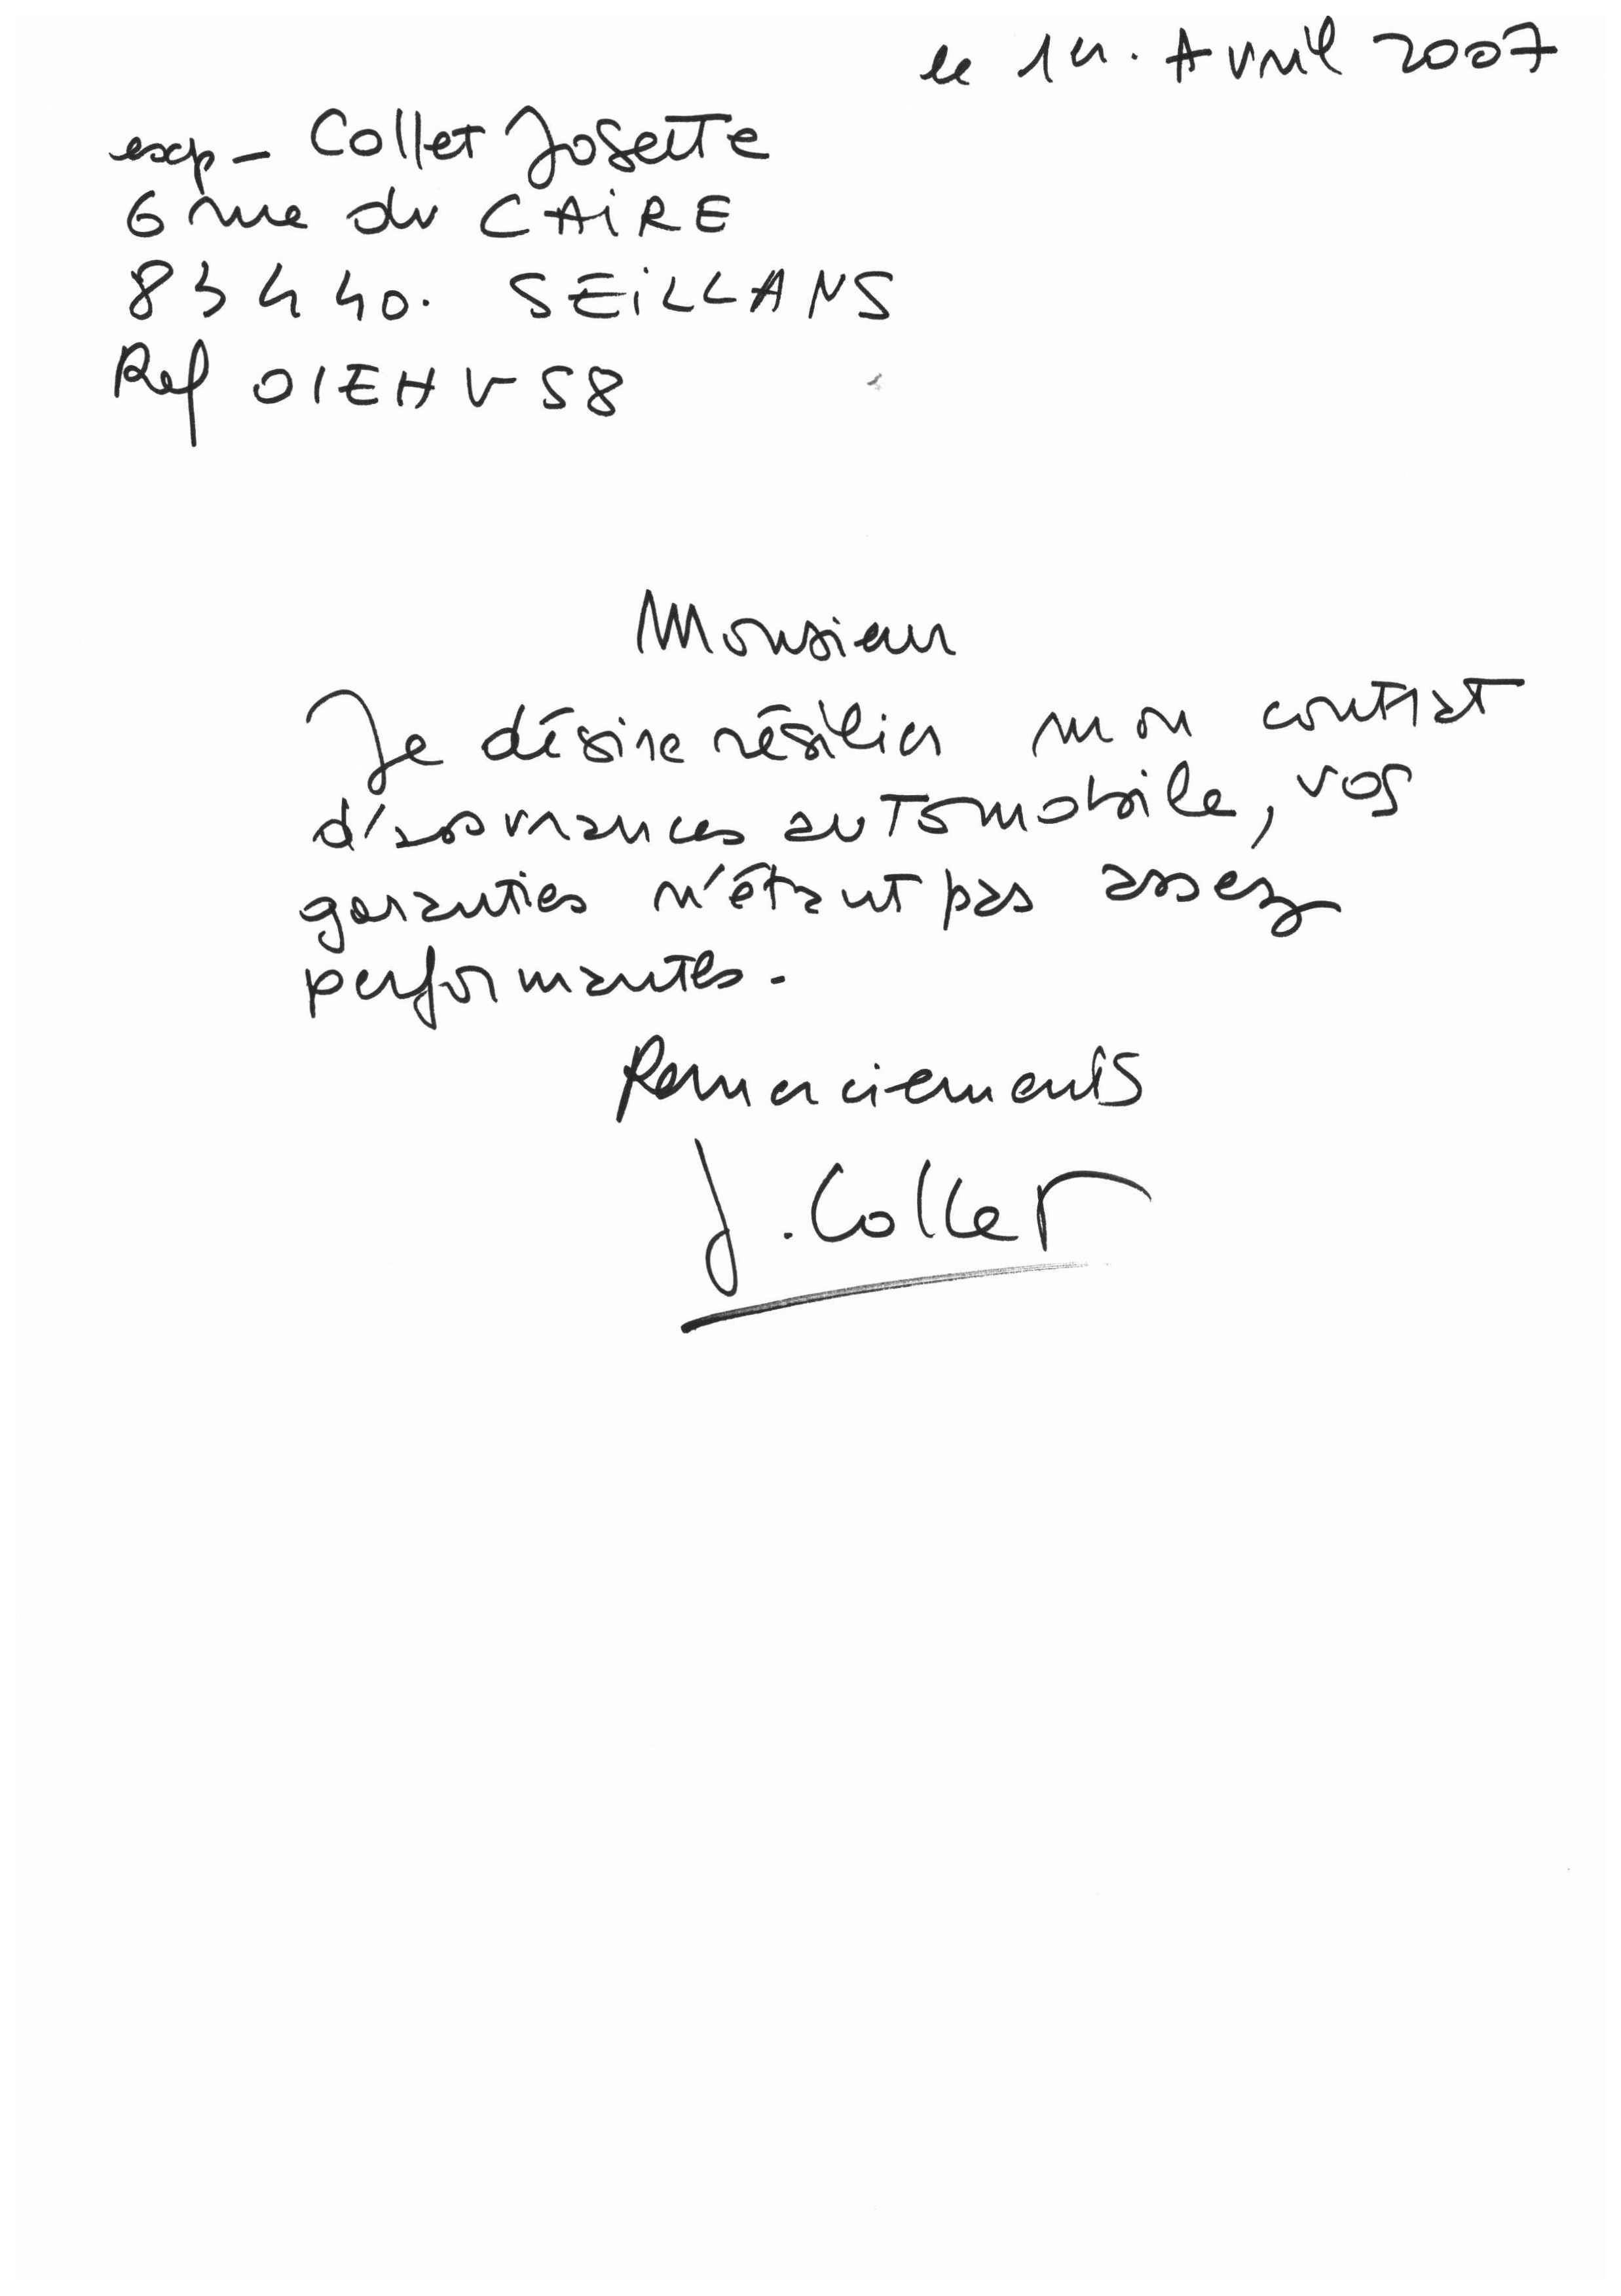 le 1er. Avril 2007
exp - Collet Josette
6 rue du CAIRE
83440. SEILLANS
Ref 01EHV58
Monsieur
Je désire résilier mon contrat
d'assurances automobile, vos
garanties n'étant pas assez
performantes.
Remerciements
J. Collet